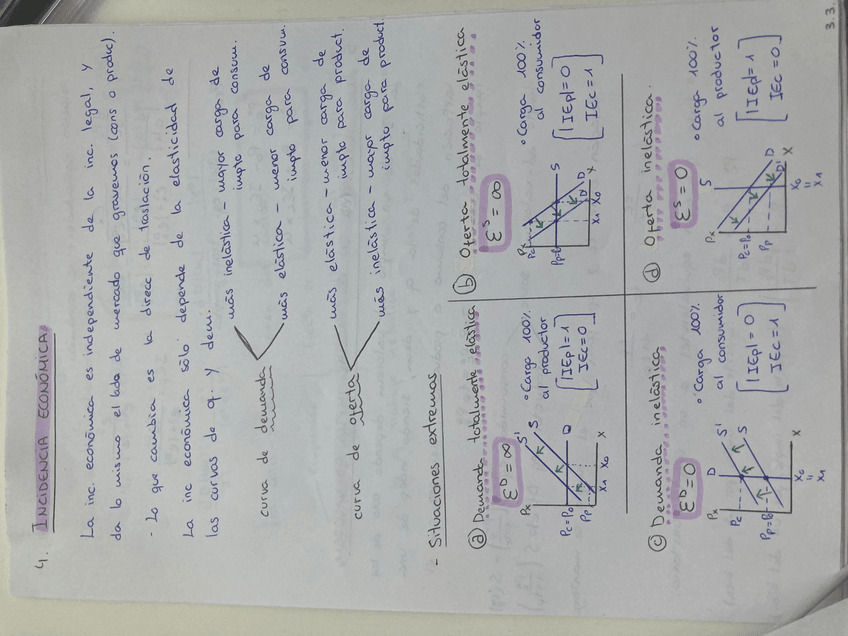 4. INCIDENCIA ECONÓMICA
La inc. económica es independiente de la inc. legal, y
da lo mismo el lado de mercado que gravemos (cons o produc).
- Lo que cambia es la direcc de traslación.
La inc económica sólo depende de la elasticidad de
las curvas de of. y dem.
curva de demanda
más inelástica - mayor carga de
impto para consum.
más elástica - menor carga de
impto para consum.
curva de oferta
más elástica - menor carga de
impto para product.
más inelástica - mayor carga de
impto para product.
- Situaciones extremas
a) Demanda totalmente elástica
Ɛᴰ = ∞
Px
S'
S
D
Pc=P0
Pp
X1 X0
X
• Carga 100%
al productor
|IEp| = 1
IEc = 0
b) Oferta totalmente elástica
Ɛˢ = ∞
Px
Pc
Pp=P0
S
D
D'
X1 X0
X
• Carga 100%
al consumidor
|IEp| = 0
IEc = 1
c) Demanda inelástica
Ɛᴰ = 0
Px
D
S'
S
Pc
Pp=P0
X0
=
X1
X
• Carga 100%
al consumidor
|IEp| = 0
IEc = 1
d) Oferta inelástica.
Ɛˢ = 0
Px
S
Pc=P0
Pp
D
D'
X0
=
X1
X
• Carga 100%
al productor
|IEp| = 1
IEc = 0
3.3.